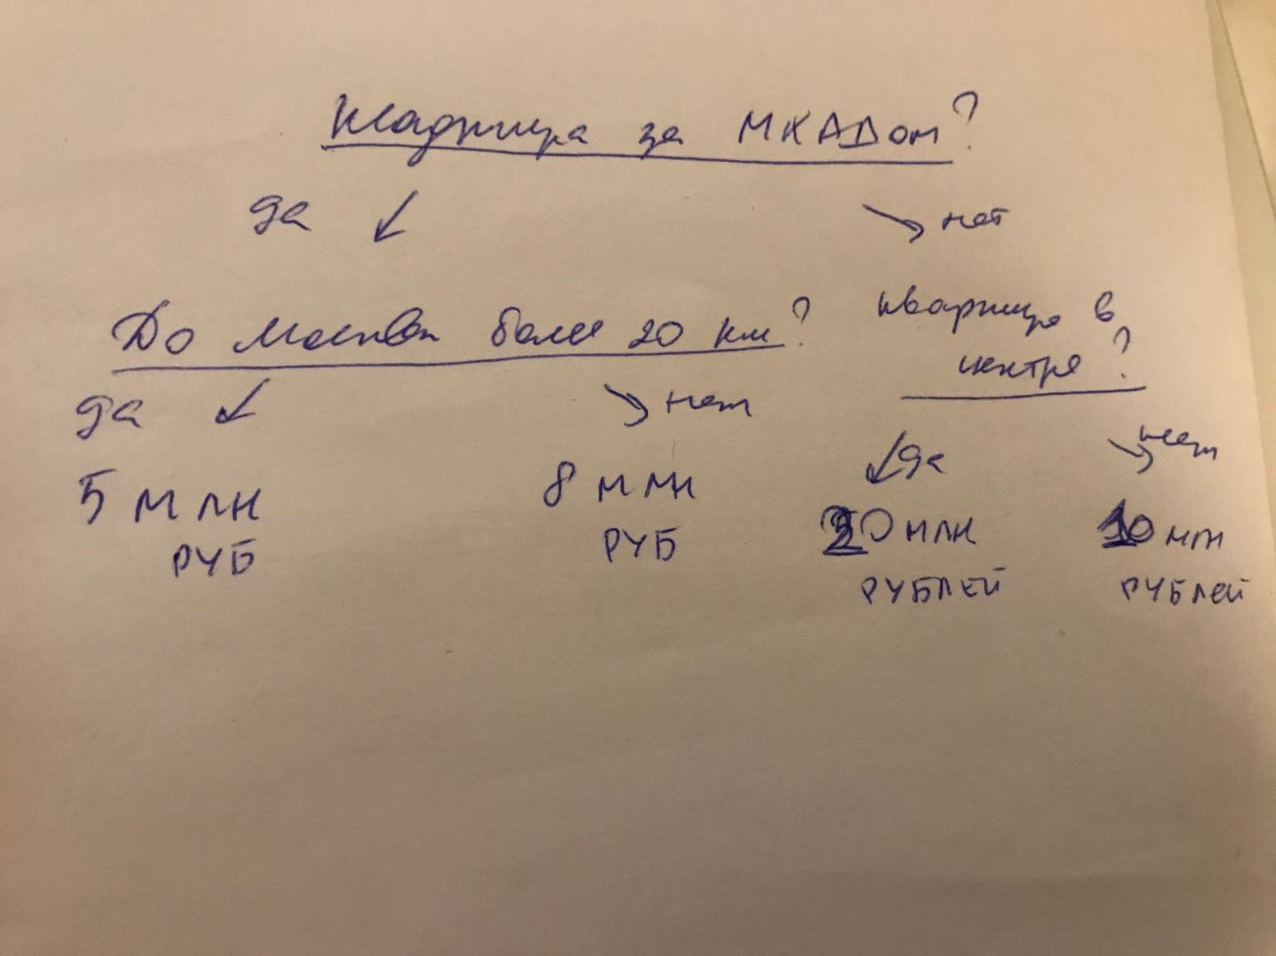 Квартира за МКАДом?
да нет
До Москвы более 20 км?
квартира в
центре?
да нет
да нет
5 млн
РУБ
8 млн
РУБ
20 млн
РУБЛЕЙ
10 млн
РУБЛЕЙ